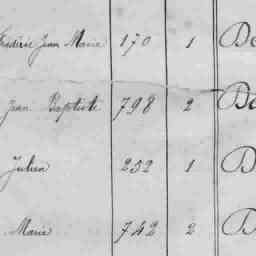 Frédéric Jean Marie 170 1 De
Jean Baptiste 798 2 De
Julien 252 1 D
Marie 742 2 D